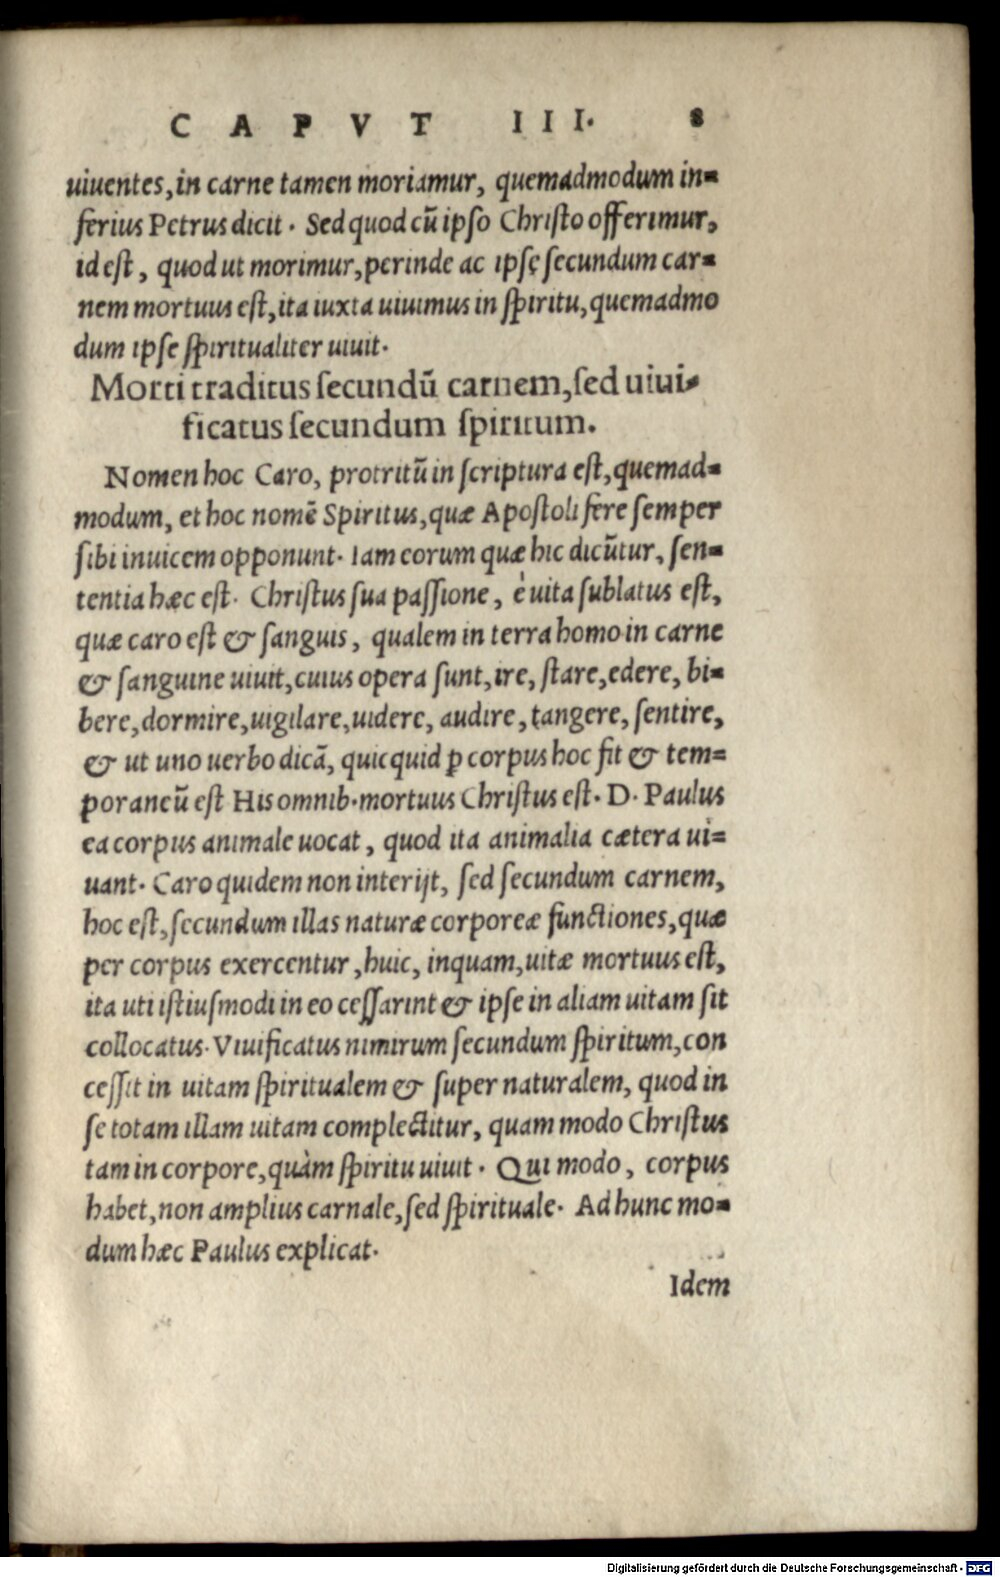 CAPVT III. 8
uiuentes, in carne tamen moriamur, quemadmodum in=
ferius Petrus dicit. Sed quod cũ ipso Christo offerimur,
id est, quod ut morimur, perinde ac ipse secundum car=
nem mortuus est, ita iuxta uiuimus in spiritu, quemadmo
dum ipse spiritualiter uiuit.
Morti traditus secundũ carnem, sed uiui=
ficatus secundum spiritum.
Nomen hoc Caro, protritũ in scriptura est, quemad=
modum, et hoc nomẽ Spiritus, quæ Apostoli fere semper
sibi inuicem opponunt. Iam eorum quæ hic dicũtur, sen=
tentia hæc est. Christus sua passione, è uita sublatus est,
quæ caro est & sanguis, qualem in terra homo in carne
& sanguine uiuit, cuius opera sunt, ire, stare, edere, bi=
bere, dormire, uigilare, uidere, audire, tangere, sentire,
& ut uno uerbo dicã, quicquid ꝑ corpus hoc fit & tem=
poraneũ est His omnib. mortuus Christus est. D. Paulus
ea corpus animale uocat, quod ita animalia cætera ui=
uant. Caro quidem non interijt, sed secundum carnem,
hoc est, secundum illas naturæ corporeæ functiones, quæ
per corpus exercentur, huic, inquam, uitæ mortuus est,
ita uti istiusmodi in eo cessarint & ipse in aliam uitam sit
collocatus. Viuificatus nimirum secundum spiritum, con
cessit in uitam spiritualem & supernaturalem, quod in
se totam illam uitam complectitur, quam modo Christus
tam in corpore, quàm spiritu uiuit. Qui modo, corpus
habet, non amplius carnale, sed spirituale. Ad hunc mo=
dum hæc Paulus explicat.
Idem
Digitalisierung gefördert durch die Deutsche Forschungsgemeinschaft - DFG